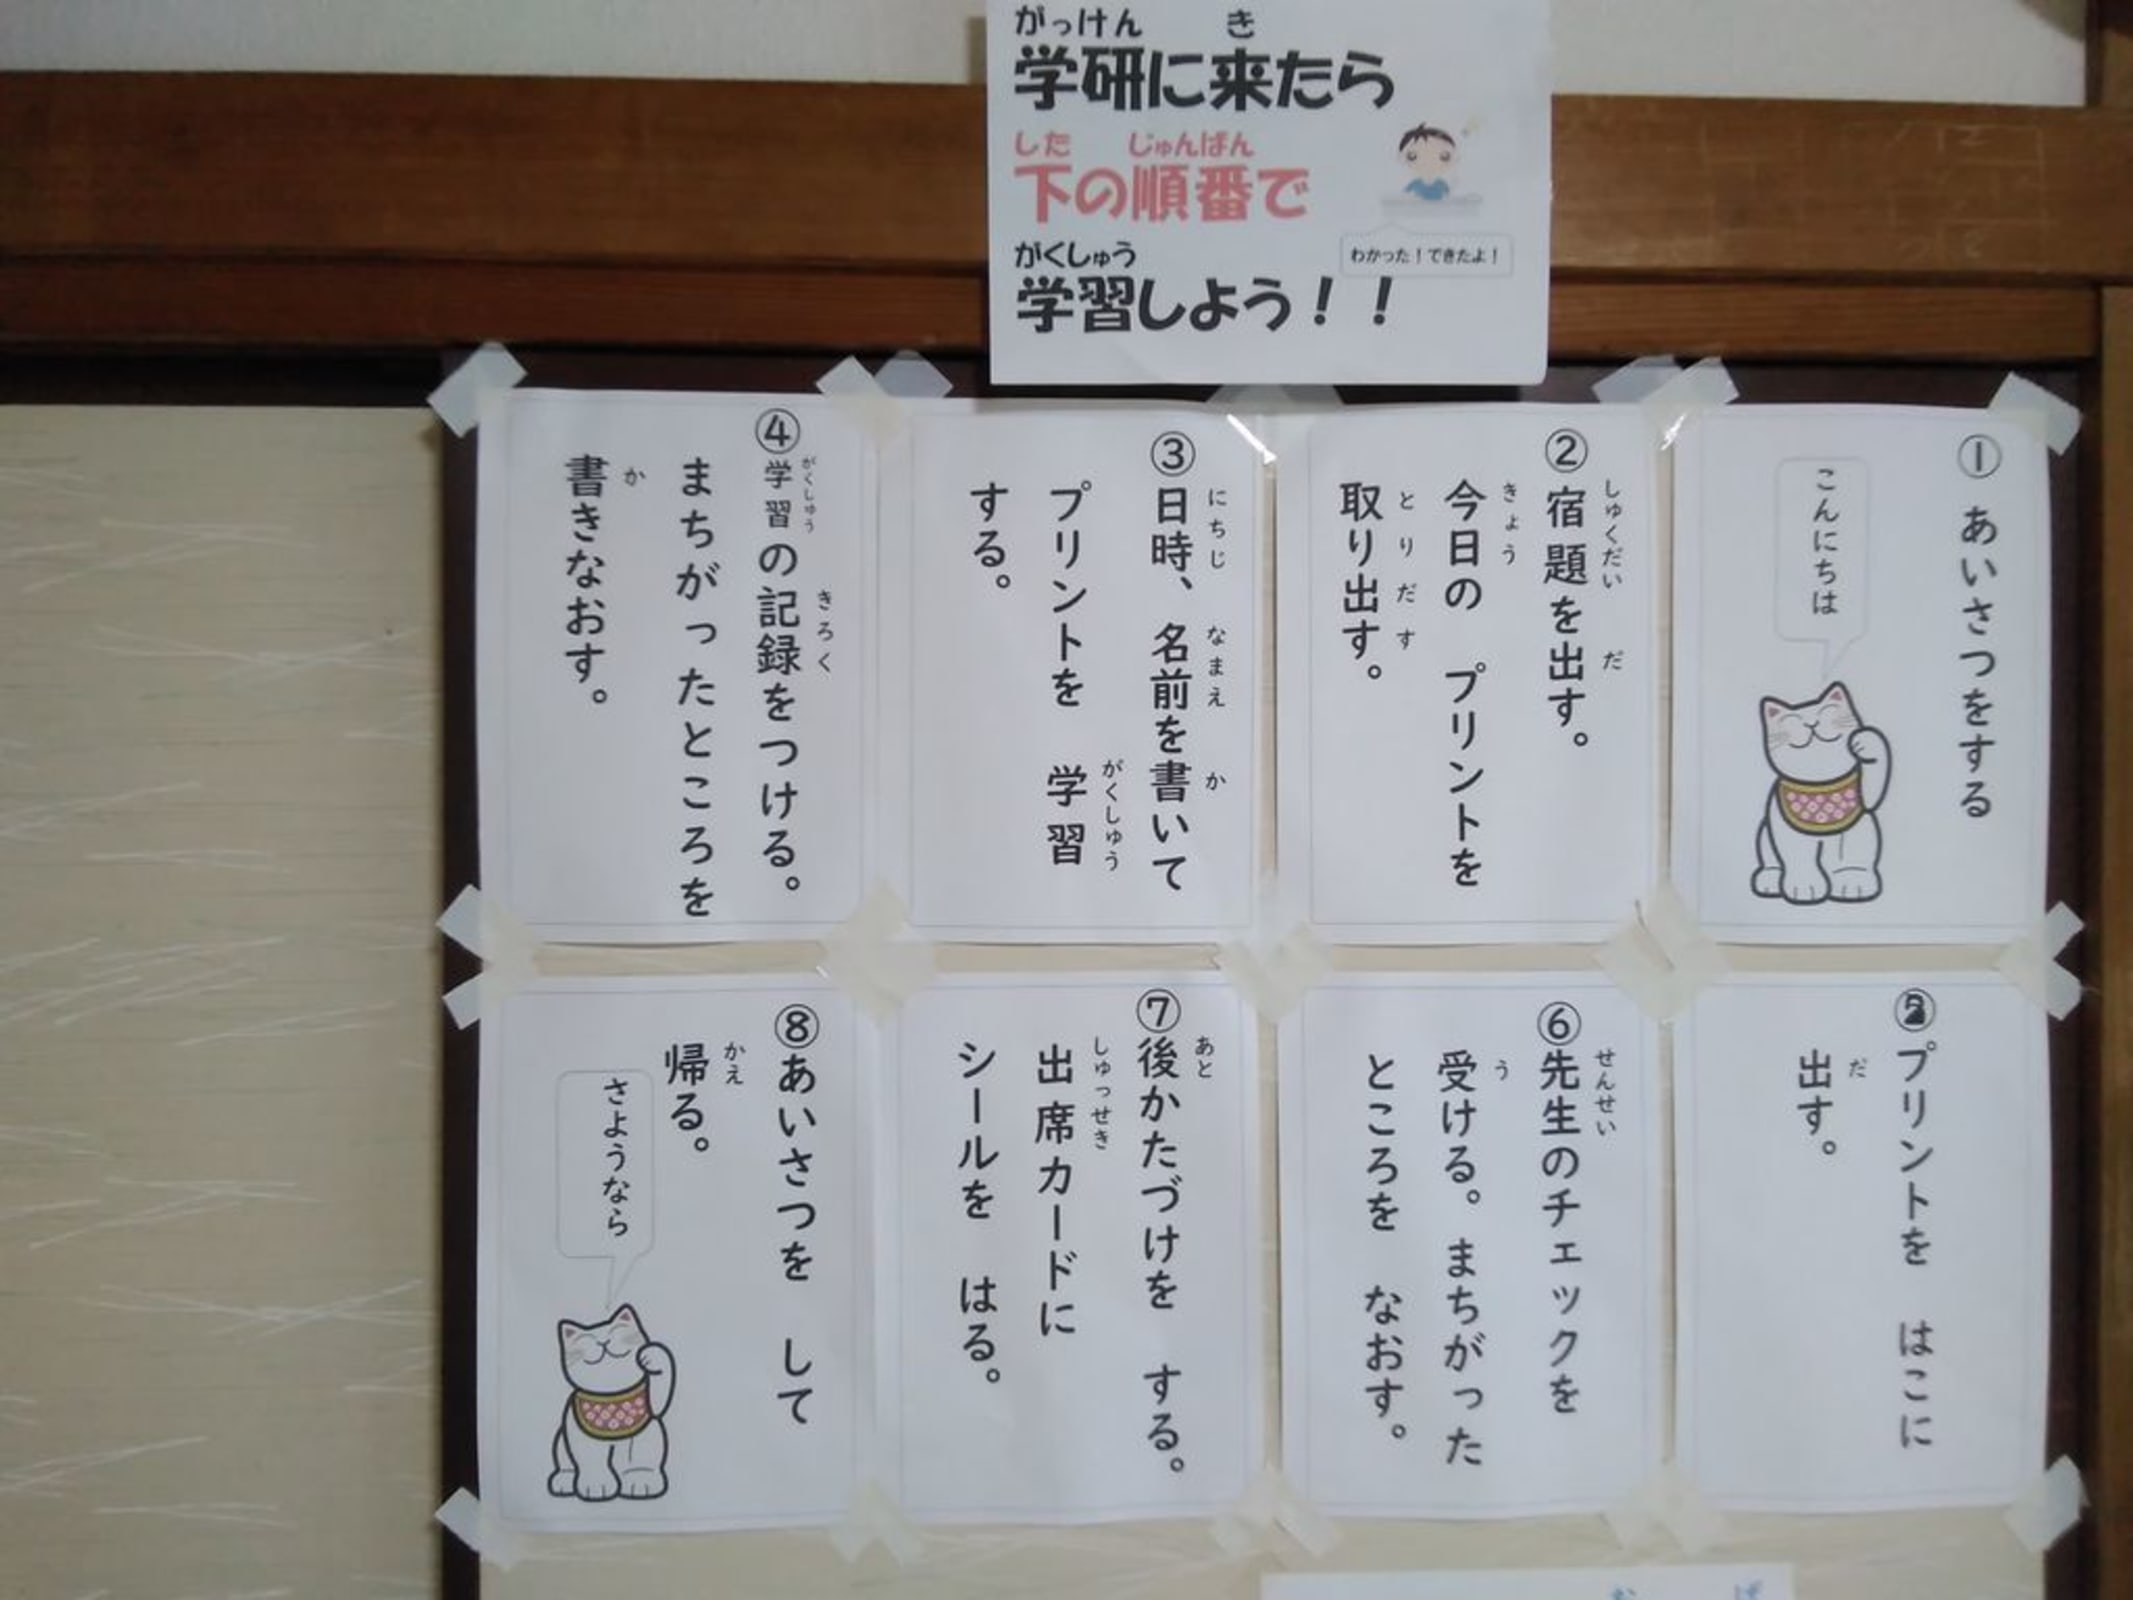 がっけん き
学研に来たら
した じゅんばん
下の順番で
がくしゅう
学習しよう！！
わかった！できたよ！
① あいさつをする
こんにちは
しゅくだい だ
②宿題を出す。
きょう
今日の プリントを
とりだす
取り出す。
にちじ なまえ か
③日時、名前を書いて
がくしゅう
プリントを 学習
する。
がくしゅう きろく
④学習の記録をつける。
まちがったところを
か
書きなおす。
プリントを はこに
だ
出す。
せんせい
⑥先生のチェックを
う
受ける。まちがった
ところを なおす。
あと
⑦後かたづけを する。
しゅっせき
出席カードに
シールを はる。
⑧あいさつを して
かえ
帰る。
さようなら